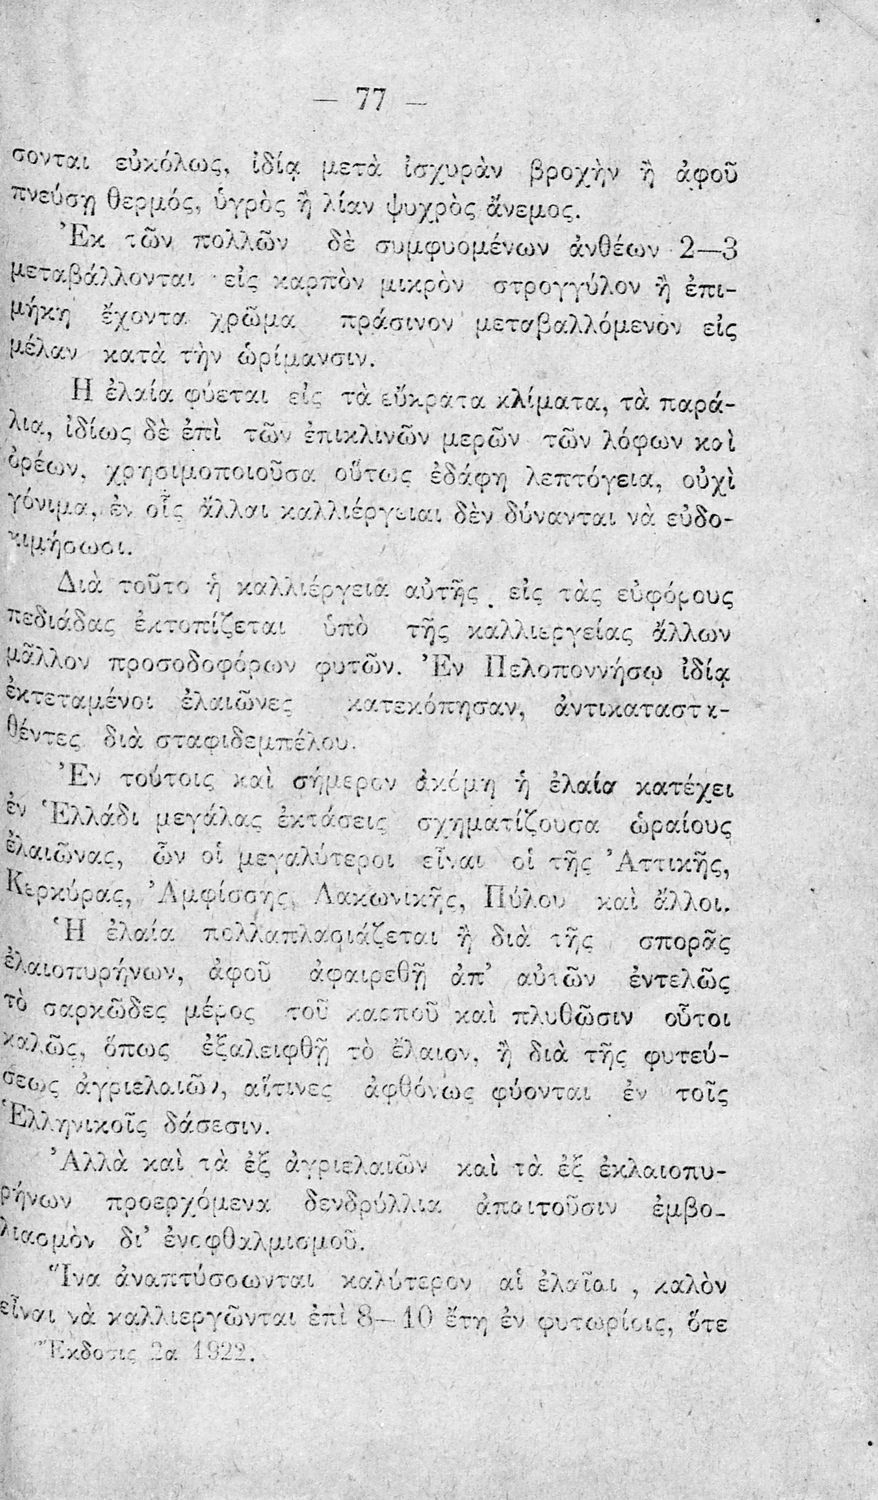 — 77 —
σονται εὐκόλως, ἰδίᾳ μετὰ ἰσχυρὰν βροχὴν ἢ ἀφοῦ
πνεύσῃ θερμός, ὑγρὸς ἢ λίαν ψυχρὸς ἄνεμος.
Ἐκ τῶν πολλῶν δὲ συμφυομένων ἀνθέων 2—3
μεταβάλλονται εἰς καρπὸν μικρὸν στρογγύλον ἢ ἐπι-
μήκη ἔχοντα χρῶμα πράσινον μεταβαλλόμενον εἰς
μέλαν κατὰ τὴν ὡρίμανσιν.
Η ἐλαία φύεται εἰς τὰ εὔκρατα κλίματα, τὰ παρά-
λια, ἰδίως δὲ ἐπὶ τῶν ἐπικλινῶν μερῶν τῶν λόφων καὶ
ὀρέων, χρησιμοποιοῦσα οὕτως ἐδάφη λεπτόγεια, οὐχὶ
γόνιμα, ἐν οἷς ἄλλαι καλλιέργειαι δὲν δύνανται νὰ εὐδο-
κιμήσωσι.
Διὰ τοῦτο ἡ καλλιέργεια αὐτῆς εἰς τὰς εὐφόρους
πεδιάδας ἐκτοπίζεται ὑπὸ τῆς καλλιεργείας ἄλλων
μᾶλλον προσοδοφόρων φυτῶν. Ἐν Πελοποννήσῳ ἰδίᾳ
ἐκτεταμένοι ἐλαιῶνες κατεκόπησαν, ἀντικαταστα-
θέντες διὰ σταφιδεμπέλου.
Ἐν τούτοις καὶ σήμερον ἀκόμη ἡ ἐλαία κατέχει
ἐν Ἑλλάδι μεγάλας ἐκτάσεις σχηματίζουσα ὡραίους
ἐλαιῶνας, ὧν οἱ μεγαλύτεροι εἶναι οἱ τῆς Ἀττικῆς,
Κερκύρας, Ἀμφίσσης, Λακωνικῆς, Πύλου καὶ ἄλλοι.
Ἡ ἐλαία πολλαπλασιάζεται ἢ διὰ τῆς σπορᾶς
ἐλαιοπυρήνων, ἀφοῦ ἀφαιρεθῇ ἀπ' αὐτῶν ἐντελῶς
τὸ σαρκῶδες μέρος τοῦ καρποῦ καὶ πλυθῶσιν οὗτοι
καλῶς, ὅπως ἐξαλειφθῇ τὸ ἔλαιον, ἢ διὰ τῆς φυτεύ-
σεως ἀγριελαιῶν, αἵτινες ἀφθόνως φύονται ἐν τοῖς
Ἑλληνικοῖς δάσεσιν.
Ἀλλὰ καὶ τὰ ἐξ ἀγριελαιῶν καὶ τὰ ἐξ ἐκλαιοπυ-
ρήνων προερχόμενα δενδρύλλια ἀπαιτοῦσιν ἐμβο-
λιασμὸν δι' ἐνοφθαλμισμοῦ.
Ἵνα ἀναπτύσσωνται καλύτερον αἱ ἐλαῖαι, καλὸν
εἶναι νὰ καλλιεργῶνται ἐπὶ 8—10 ἔτη ἐν φυτωρίοις, ὅτε
Ἔκδοσις 2α 1922.